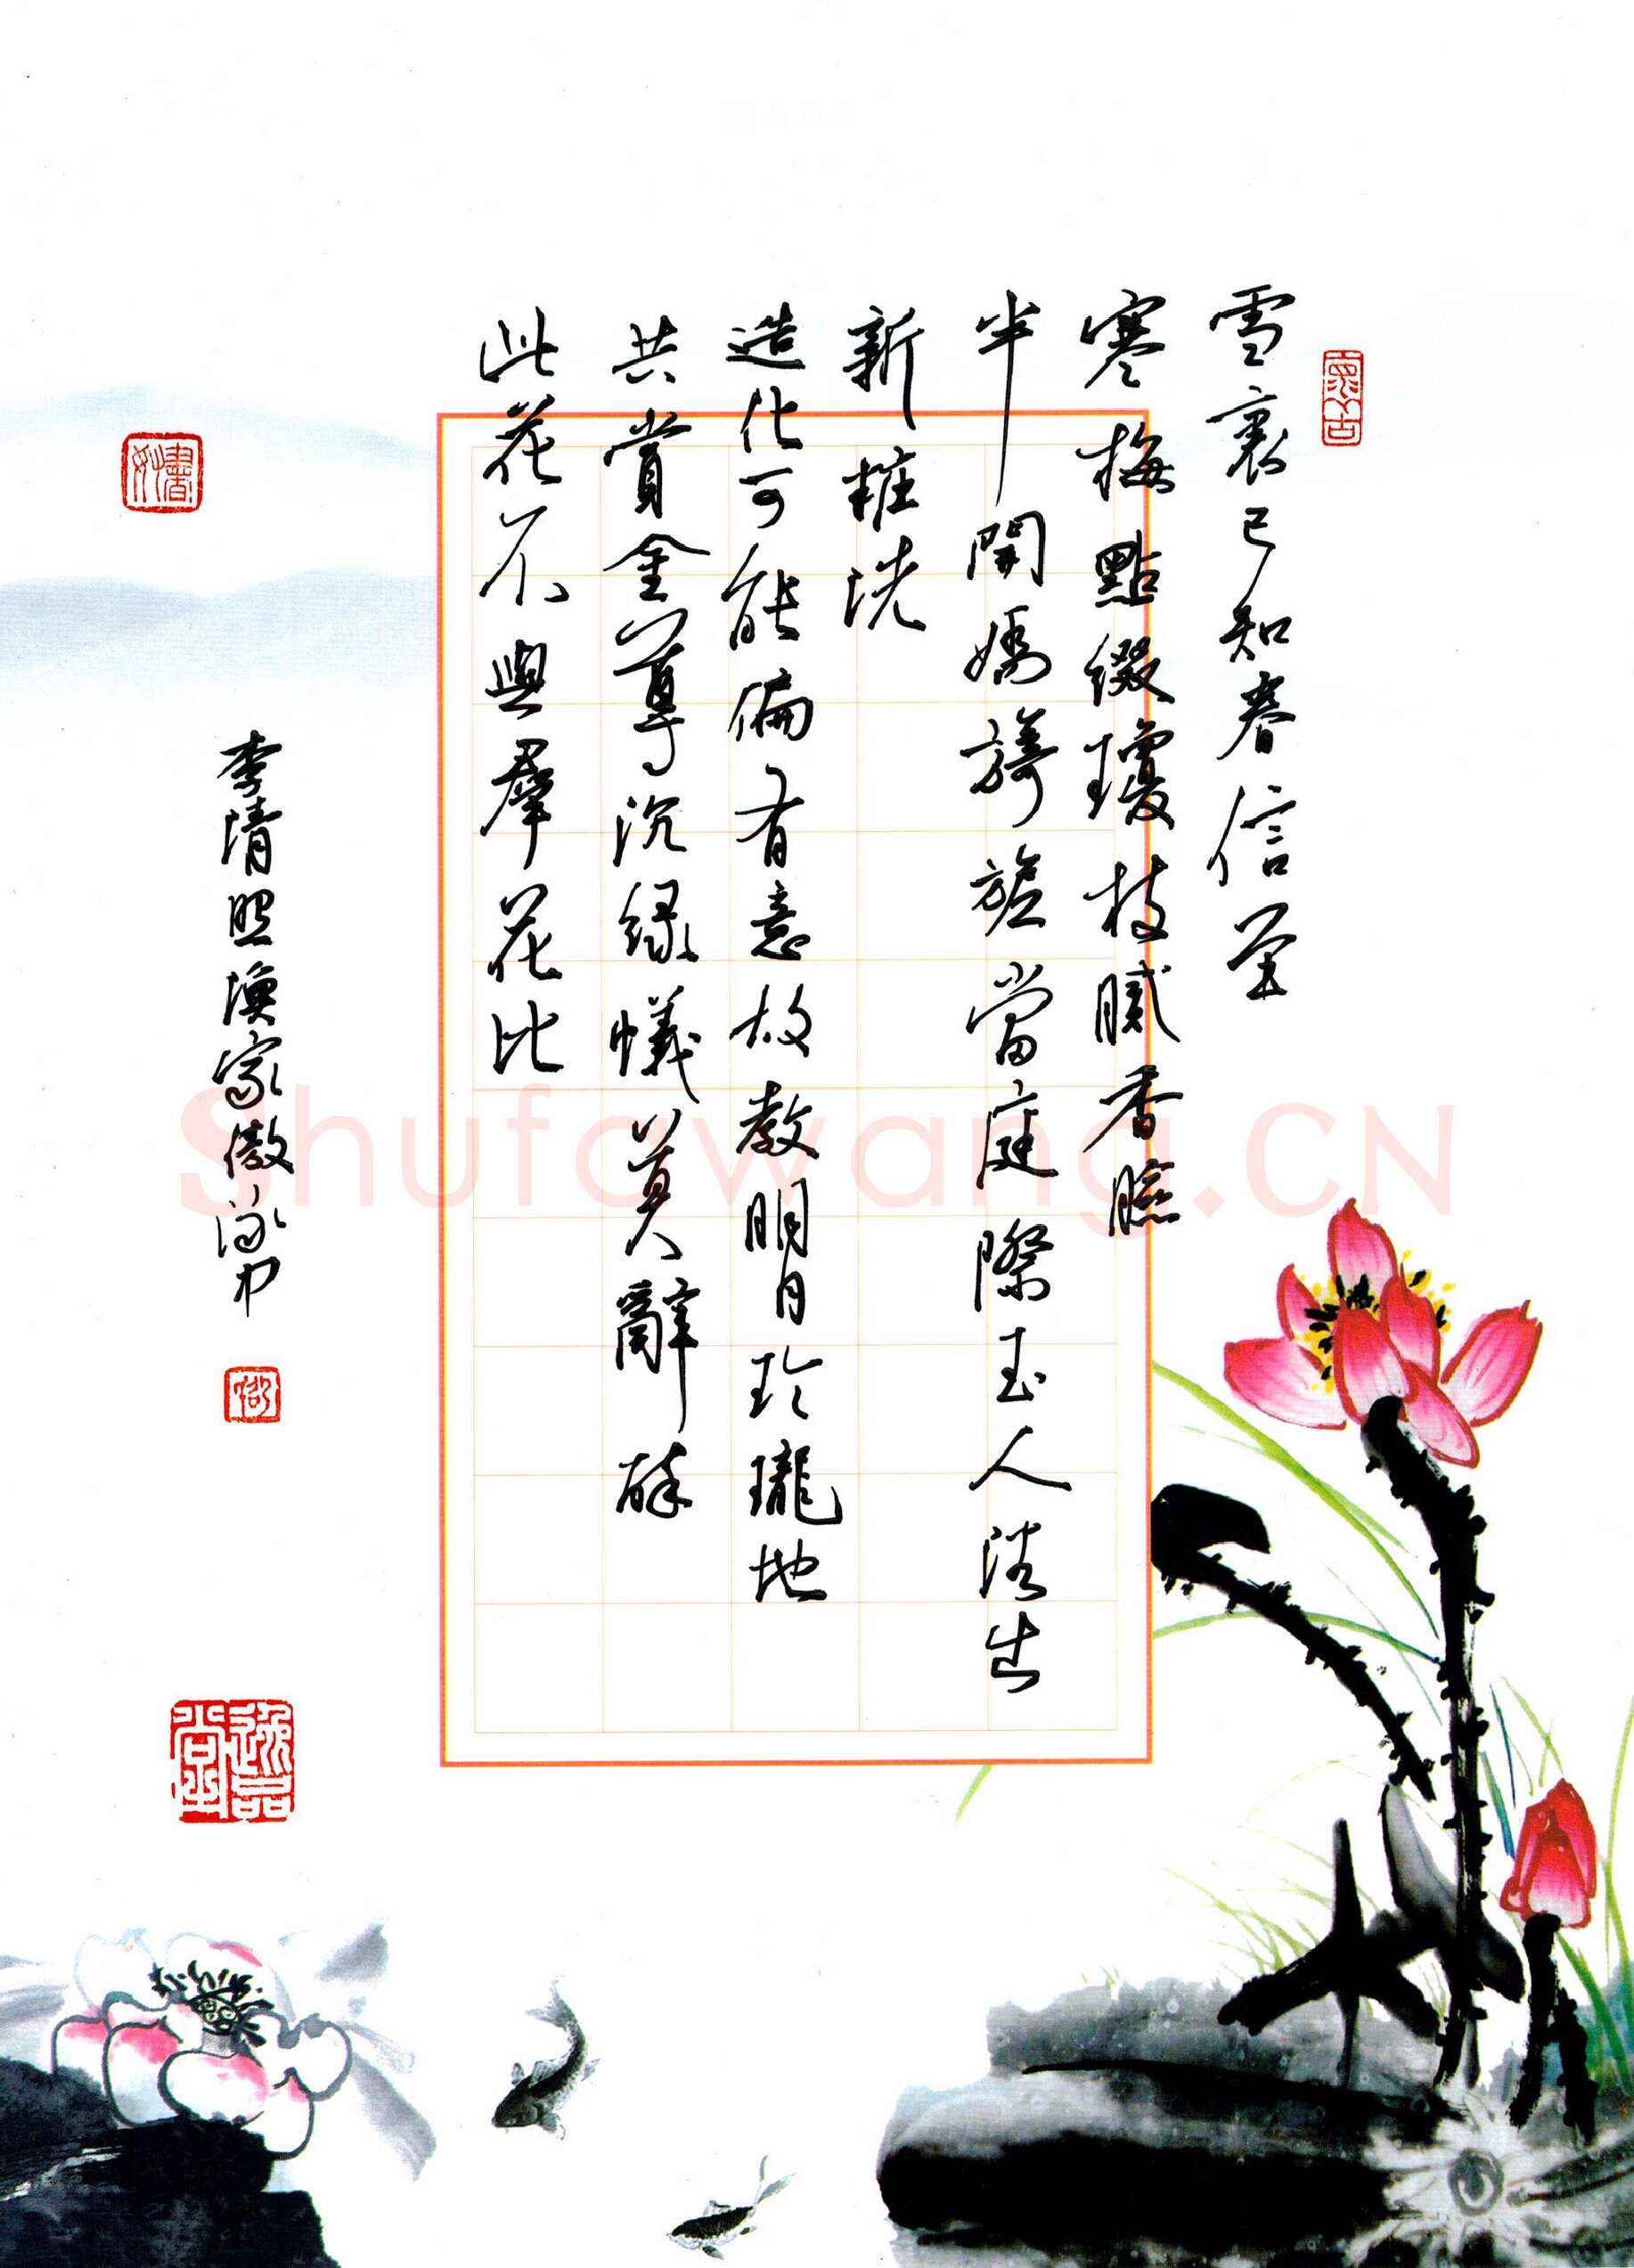 雪裏已知春信至
寒梅點綴瓊枝膩香臉
半開嬌旖旎當庭際玉人浴出
新粧洗
造化可能偏有意故教明月玲瓏地
共賞金尊沉綠蟻莫辭醉
此花不與羣花比
李清照漁家傲泳力
Shufawang.CN